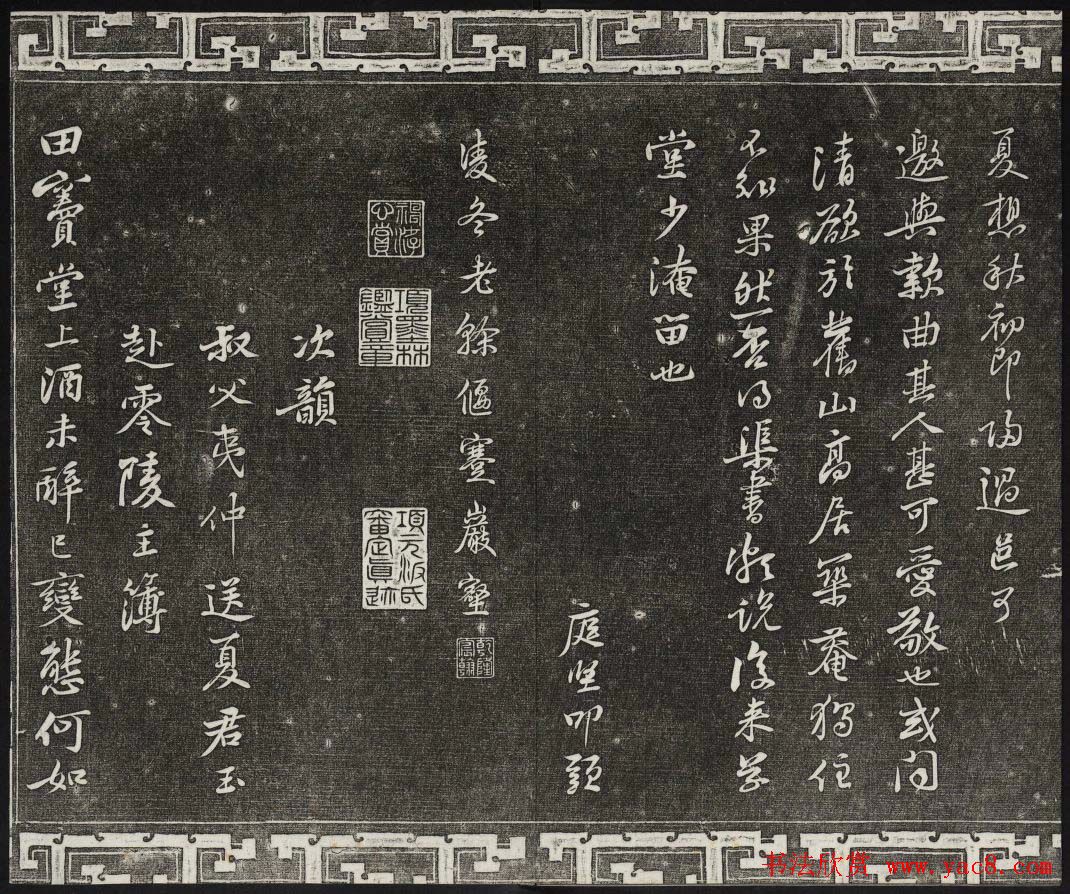 夏想秋初即归過邑可
邀與款曲其人甚可愛敬也或问
清欲於舊山高居築菴獨住
不知果然否得渠書頗说復来草
堂少淹留也
庭坚叩頭
凌冬老幹偃蹇巖壑
乾隆宸翰
項墨林鑑賞章
項元汴氏審定真迹
次韻
叔父夷仲送夏君玉
赴零陵主簿
田竇堂上酒未醉已變態何如
书法欣赏 www.yac8.com